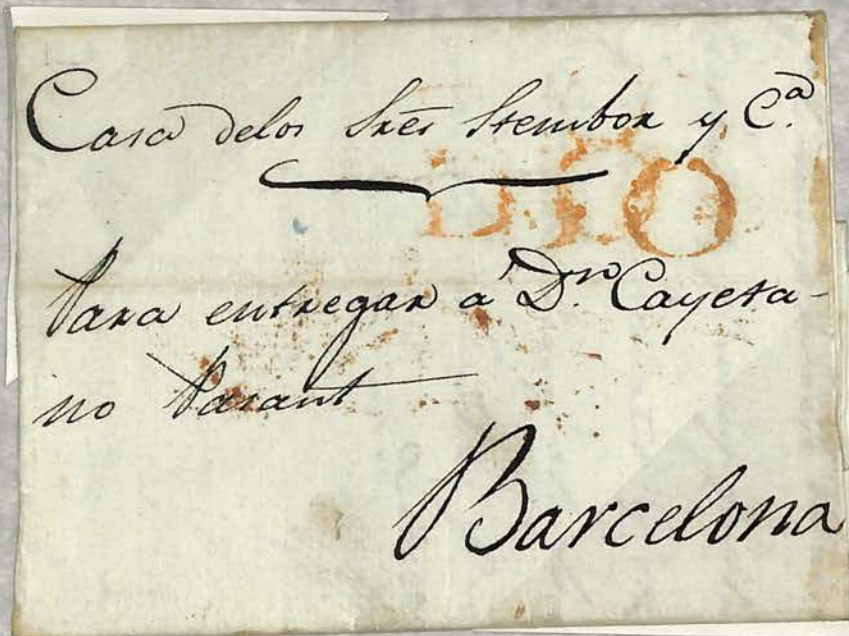 Casa delos Sres Stembor y Cª
Para entregar a Dn Cayeta-
no Pasant
Barcelona